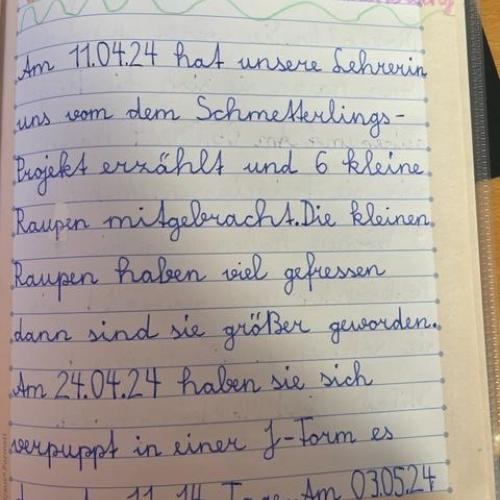 Am 11.04.24 hat unsere Lehrerin
uns vom dem Schmetterlings-
Projekt erzählt und 6 kleine
Raupen mitgebracht. Die kleinen
Raupen haben viel gefressen
dann sind sie größer geworden.
Am 24.04.24 haben sie sich
verpuppt in einer J-Form es
11-14 Tage. Am 03.05.24